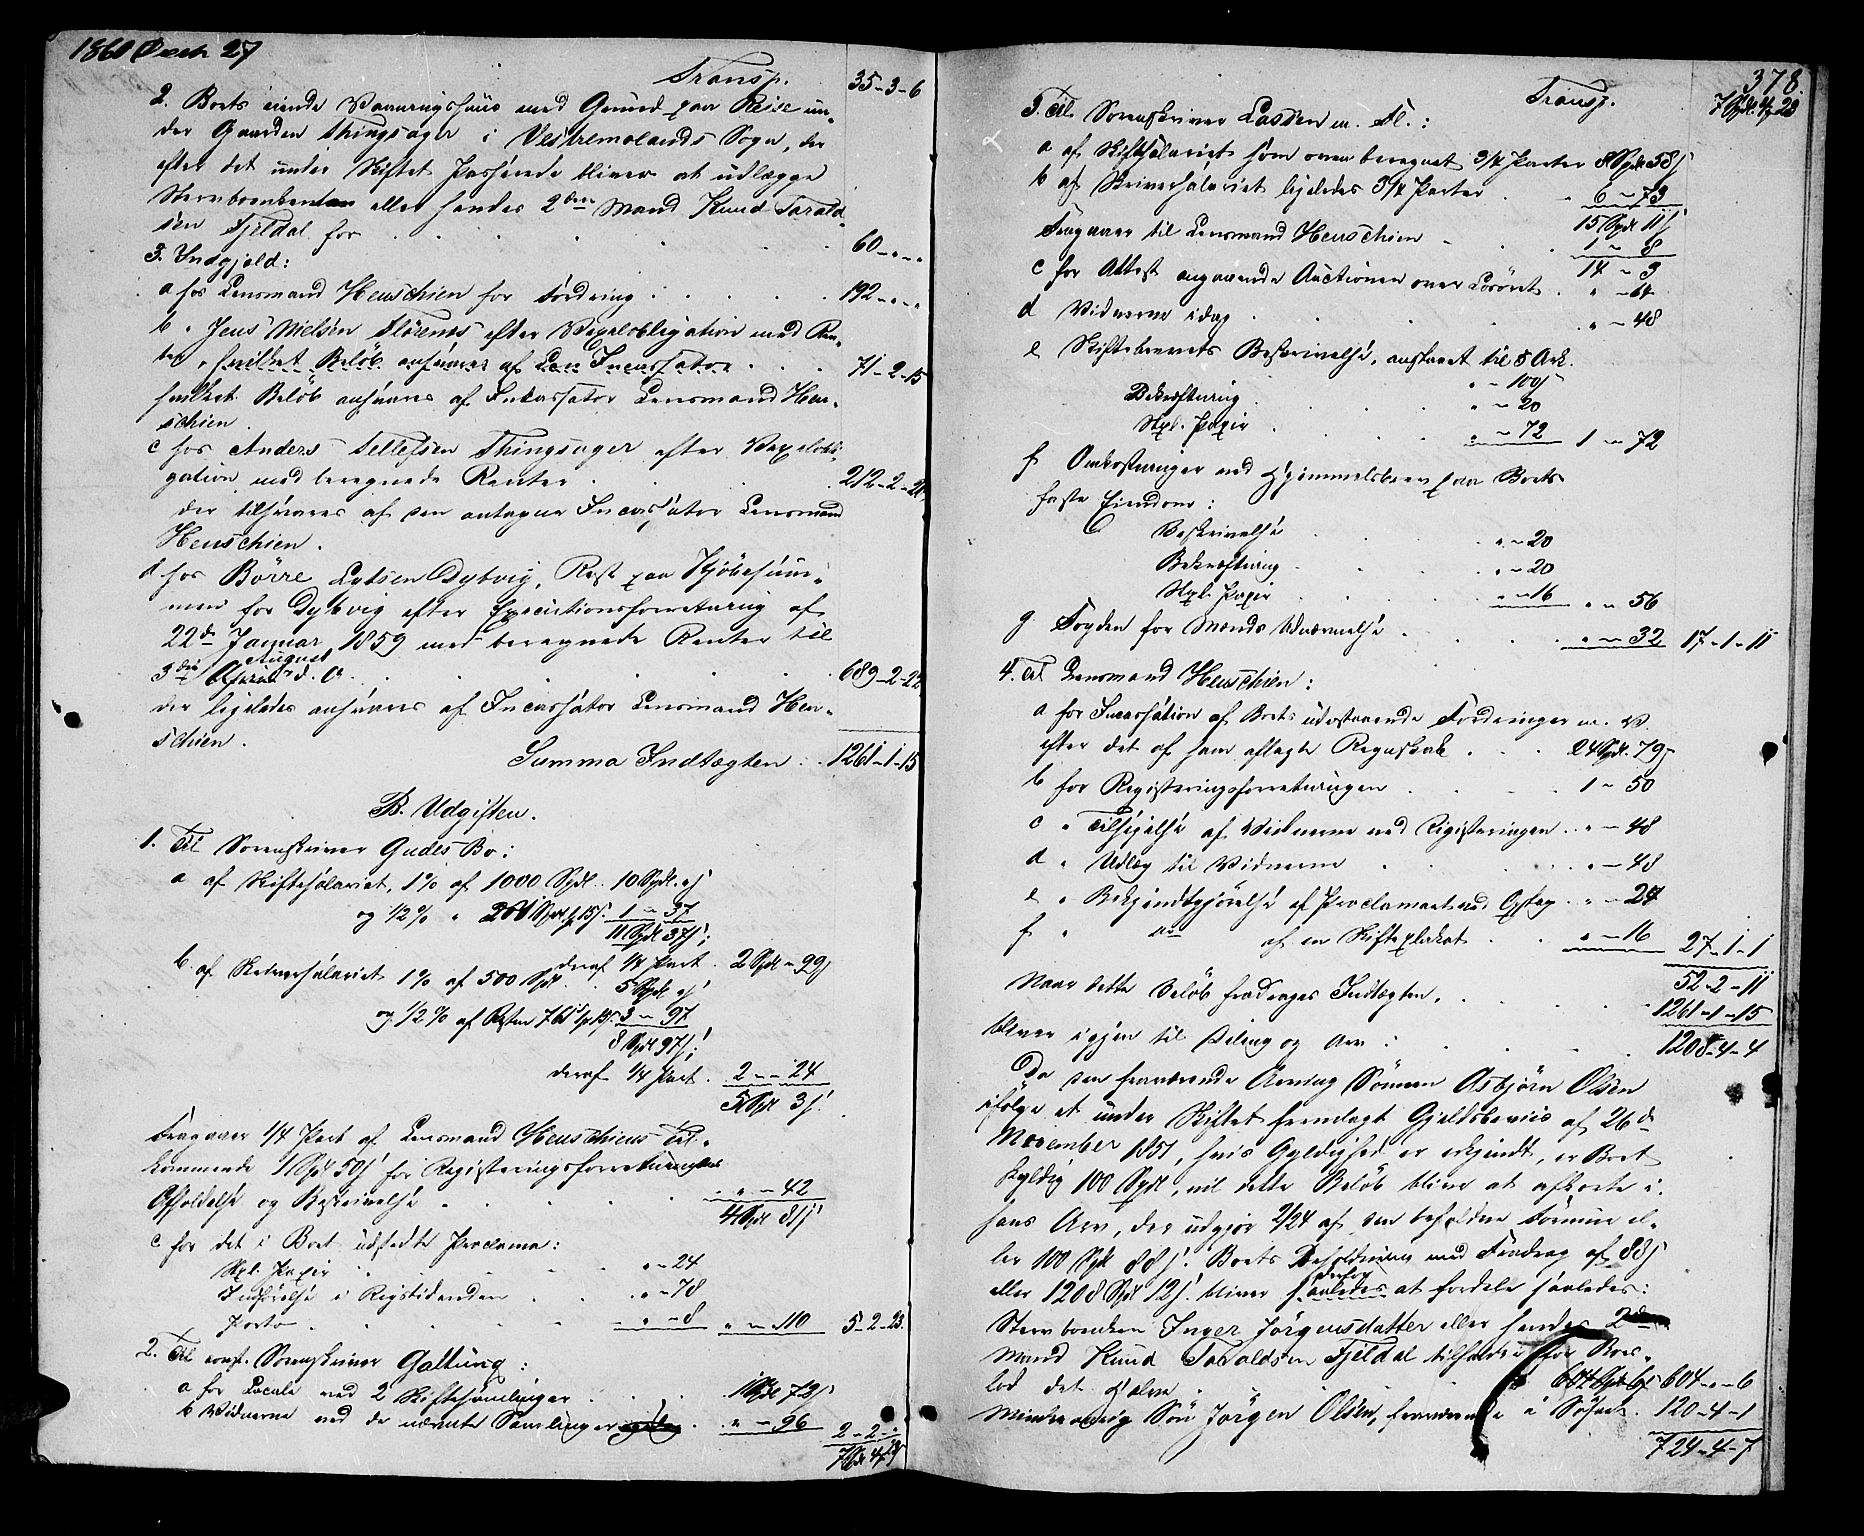 1860 Decb 27
Transp. 35-3-6
2. Boets eiende Vaaningshuus med Grund paa Reise un-
der Gaarden Thingsager i Vestremolands Sogn, der
efter det under Skiftet Passerede bliver at udlægge
Stervboenken eller hendes 2den Mand Knud Tarald-
sen Fjeldal for 60-"-"
3. Indgjæld:
a hos Lensmand Henschien for Fordring 192-"-"
b " Jens Nielsen Florenes efter Vexelobligation med Ren-
ter, hvilket Beløb ansvares af Den Incassator 71-2-15
hvilket Beløb ansvares af Incassator Lensmand Hen-
schien.
c hos Anders Tellefsen Thingsager efter Vexelobli-
gation med beregnede Renter 212-2-20
der tilsvares af den antagne Incassator Lensmand
Henschien.
d hos Börre Lytsen Dybvig, Rest paa Kjöbesum-
men for Dybvig efter Executionsforretning af
22de Januar 1859 med beregnede Renter til
August
3die April d. A. 689-2-22
der ligeledes ansvares af Incassator Lensmand Hen-
schien.
Summa Indtægten 1261-1-15
B. Udgiften.
1. Til Sorenskriver Gudes Bo:
a af Skiftesalariet, 1% af 1000 Spdl. 10 Spdl. " s
og 1/2% " 261 Spdl 15 s. 1 - 37
11 Spdl 37 s;
deraf 1/4 Part 2 Spdl - 99 s
b. af Skriversalariet 1% af 500 Spdl 5 Spdl " s
og 1/2% af Resten 761 Sp 15 s. 3 - 97
8 Spdl 97 s;
deraf 1/4 Part. 2 - 24
5 Spdl 3 s.
Fragaaer 1/4 Part af Lensmand Henschiens Til-
kommende 1 Spdl 50 s for Registeringsforretningens
Afholdelse og Beskrivelse " - 42
4 Spdl 81 s
c for det i Boet udstedte Proclama:
Stpl. Papir " - 24
Indförelse i Rigstidenden " - 78
Porto " - 8 " - 110 5-2-23
2. Til const. Sorenskriver Galtung:
a for Locale ved 2 Skiftesamlinger 1 Spdl 72 s
b Vidnerne ved de nævnte Samlinger " - 96 2-2-"
7 Spdl 4-23
378.
Transp. 7 Spdl. 4-23
3. Til Sorenskriver Lassen m. Fl.:
a af Skiftesalariet som oven beregnet 3/4 Parter 8 Spdl 58 s
b af Skriversalariet ligeledes 3/4 Parter 6 - 73
15 Spdl 11 s
Fragaaer til Lensmand Henschien 1 - 8
14 - 3
c for Attest angaaende Auctionen over Lösöret " - 64
d Vidnerne idag " - 48
e Skiftebrevets Beskrivelse, anslaaet til 5 Ark.
" - 100 s
Bekræftning " - 20
Stpl. Papir " - 72 1 - 72
f Omkostninger med Hjemmelsbrev paa Boets
faste Eiendom:
Beskrivelse " - 20
Bekræftning " - 20
Stpl. Papir " - 16 " - 56
g Fogden for Mænds Udnævnelse " - 32 17-1-11
4. Til Lensmand Henschien:
a for Incassation af Boets udestaaende Fordringer m. V.
efter det af ham aflagte Regnskab 24 Spdl. 79 s
b for Registeringsforretningen 1 - 50
c " Tilsigelse af Vidnerne ved Registeringen " - 48
d " Udlæg til Vidnerne " - 48
e " Bekjendtgjörelse af Proclamaet ved Opslag " - 24
f " do af en Skifteplakat " - 16 27-1-1
52-2-11
Naar dette Beløb fradrages Indtægten, 1261-1-15
bliver igjen til Deling og Arv 1208-4-4
Da den fraværende Arving Sönnen Asbjörn Olsen
ifölge et under Skiftet fremlagt Gjeldsbeviis af 26de
November 1851, hvis Gyldighed er erkjendt, er Boet
skyldig 100 Spdl, vil dette Beløb blive at afkorte i
hans Arv, der udgjör 2/24 af den beholdne Formue el-
ler 100 Spdl 88 s. Boets Beholdning med Fradrag af 88 s
derfor
eller 1208 Spdl 12 s. bliver saaledes at fordele saaledes:
Stervboenken Inger Jörgensdatter eller hendes 2den
Mand Knud Taraldsen Fjeldal tilfalder for Boes-
lod det Halve 604 Spdl 6 s 604-"-6
Mindreaarig Sön Jörgen Olsen, fraværende i Söfart. 120-4-1
724-4-7